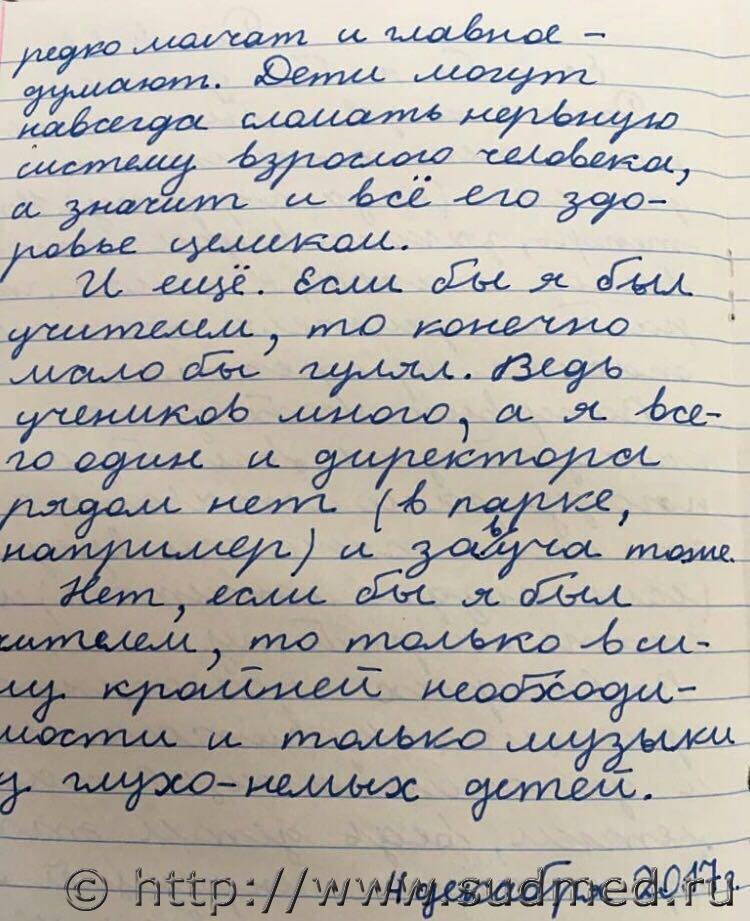 редко молчат и главное –
думают. Дети могут
навсегда сломать нервную
систему взрослого человека,
а значит и всё его здо-
ровье целиком.
И ещё. Если бы я был
учителем, то конечно
мало бы гулял. Ведь
учеников много, а я все-
го один и директора
рядом нет (в парке,
например) и завуча тоже.
Нет, если бы я был
чителем, то только в си-
лу крайней необходи-
мости и только музыки
у глухо-немых детей.
4 декабря 2017 г.
© http://www.sudmed.ru